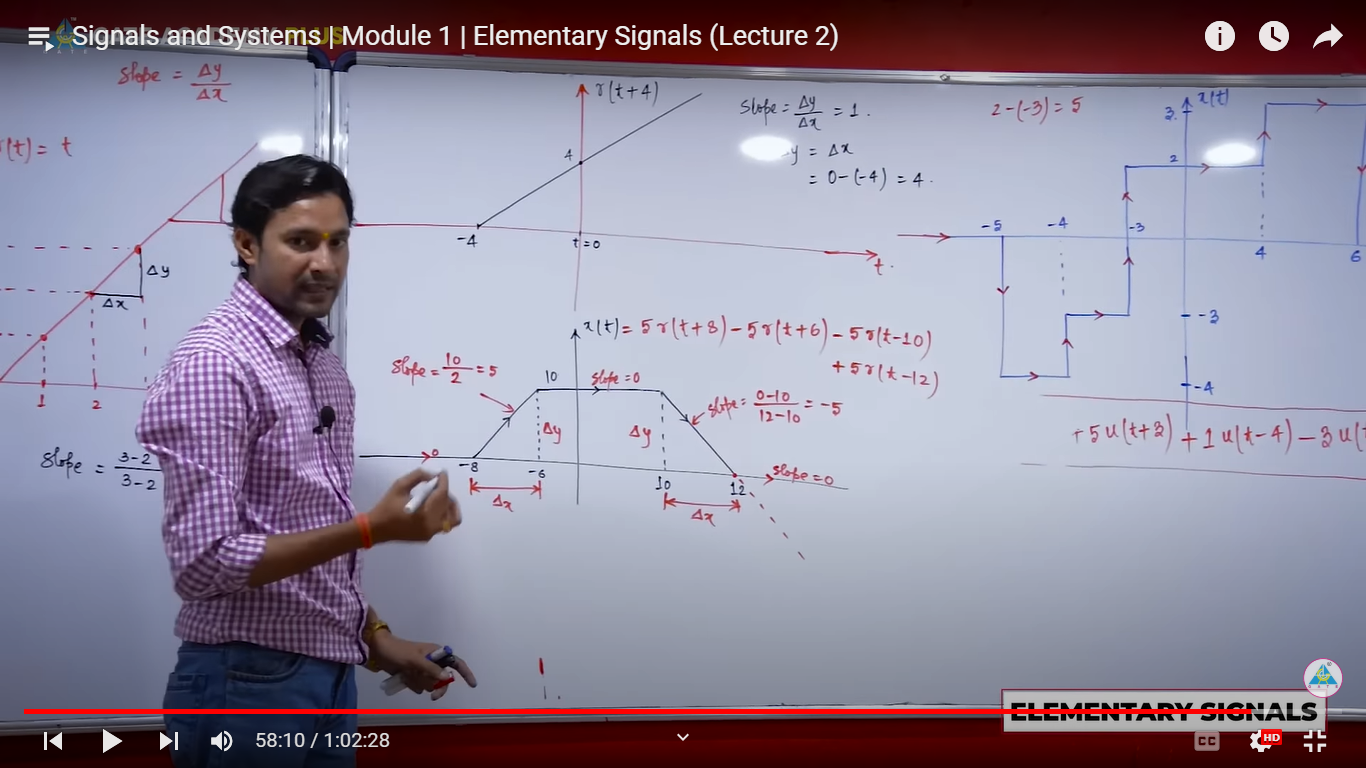 Signals and Systems | Module 1 | Elementary Signals (Lecture 2)
slope = Δy/Δx
r(t) = t
Δy
Δx
1 2
slope = 3-2/3-2
r(t+4)
4
-4 t=0 t.
slope = Δy/Δx = 1.
y = Δx
= 0-(-4) = 4.
x(t) = 5r(t+8) - 5r(t+6) - 5r(t-10)
+ 5r(t-12)
slope = 10/2 = 5
10 slope=0
slope = 0-10/12-10 = -5
Δy Δy
0 -8 -6 10 12 slope=0
Δx Δx
2-(-3) = 5
x(t)
3
2
-5 -4 -3 4 6
-3
-4
+5u(t+3) + 1u(t-4) - 3u(t
ELEMENTARY SIGNALS
58:10 / 1:02:28
CC HD